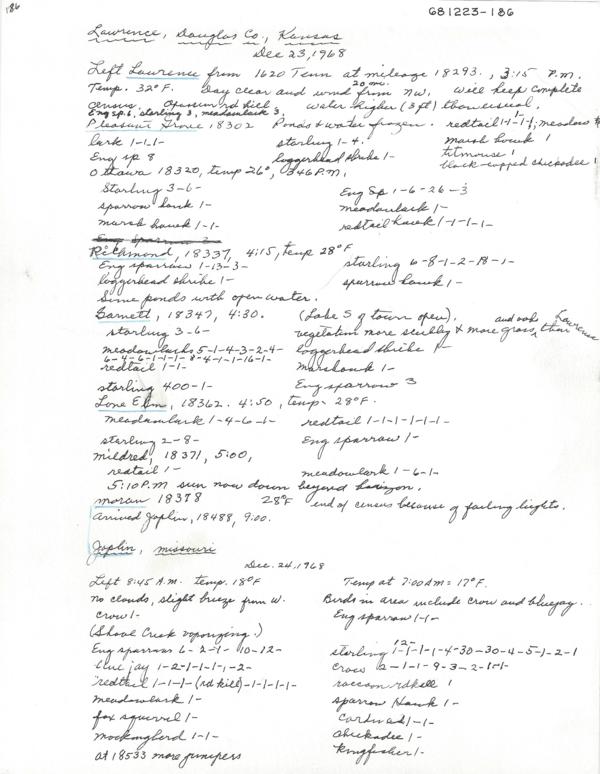 186
681223-186
Lawrence, Douglas Co., Kansas
Dec 23, 1968
Left Lawrence from 1620 Tenn at mileage 18293., 3:15 P.M.
Temp. 32°F. Day clear and wind 20 mi. from NW. Will keep complete
census. Opossum rd kill. Water higher (3 ft) than usual.
Eng sp. 6, starling 3, meadowlark 3,
Pleasant Grove 18302 Ponds & water frozen. redtail 1-1-1-1; meadow
lark 1-1-1- starling 1-4. marsh hawk 1
Eng sp 8 loggerhead shrike 1- titmouse 1
black-capped chickadee 1
Ottawa 18320, temp 26°, 3:46 P.M.
Starling 3-6- Eng Sp 1-6-26-3
sparrow hawk 1- meadowlark 1-
marsh hawk 1-1- redtail hawk 1-1-1-1-
Eng Sparrow 2
Richmond, 18337, 4:15, temp 28°F
Eng sparrow 1-13-3- starling 6-8-1-2-18-1-
loggerhead shrike 1- sparrow hawk 1-
Some ponds with open water.
Garnett, 18347, 4:30. (Lake S of town open). and oaks Lawrence
starling 3-6- vegetation more scrubby & more grass, than
meadowlarks 5-1-4-3-2-4- loggerhead shrike 1-
6-4-6-1-1-1-8-4-1-1-16-1-
redtail 1-1- Marshawk 1-
starling 400-1- Eng sparrow 3
Lone Elm, 18362. 4:50, temp. 28°F.
meadowlark 1-4-6-1- redtail 1-1-1-1-1-1-
starling 2-8- Eng sparrow 1-
Mildred, 18371, 5:00,
redtail 1- meadowlark 1-6-1-
5:10 P.M. sun now down beyond horizon.
Moran 18378 28°F end of census because of failing lights.
Arrived Joplin, 18488, 9:00.
Joplin, Missouri
Dec. 24, 1968
Left 8:45 A.M. temp. 18°F Temp at 7:00 AM = 17°F.
No clouds, slight breeze from W. Birds in area include crow and bluejay.
Crow 1- Eng sparrow 1-1-
(Shoal Creek vaporizing.)
Eng sparrow 6-2-1-10-12- starling 1-1-1-1-4-30-30-4-5-1-2-1
12-
blue jay 1-2-1-1-1-1-2- Crow 2-1-1-9-3-2-1-1-
redtail 1-1-1- (rd kill)-1-1-1-1- raccoon rdkill 1
meadowlark 1- sparrow Hawk 1-
fox squirrel 1- Cardinal 1-1-
Mockingbird 1-1- chickadee 1-
At 18533 more junipers Kingfisher 1-